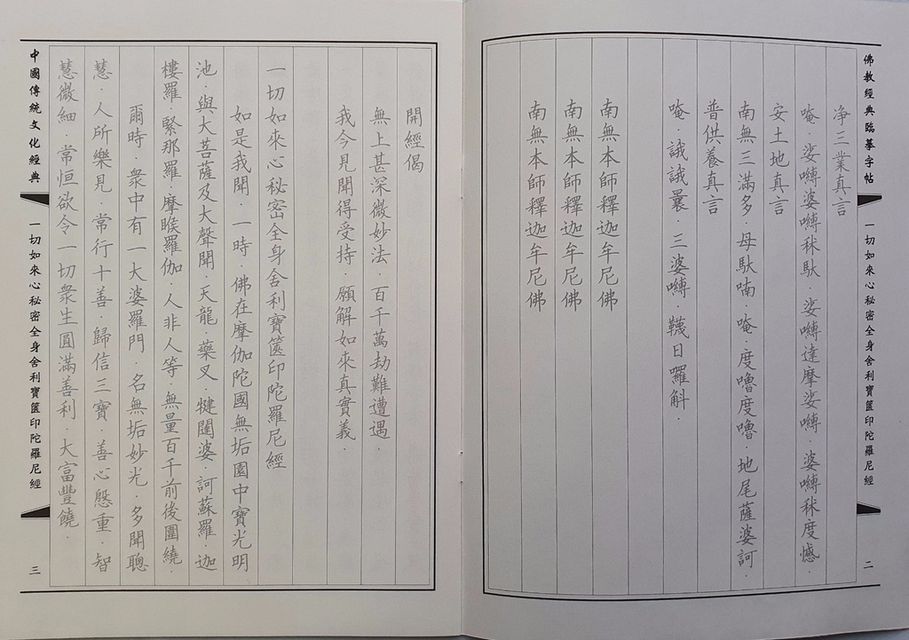 佛教經典臨摹字帖
一切如來心秘密全身舍利寶篋印陀羅尼經
二
淨三業真言
唵·娑嚩婆嚩秫馱·娑嚩達摩娑嚩·婆嚩秫度憾·
安土地真言
南無三滿多·母馱喃·唵·度嚕度嚕·地尾薩婆訶
普供養真言
唵·誐誐曩·三婆嚩·韈日囉斛
南無本師釋迦牟尼佛
南無本師釋迦牟尼佛
南無本師釋迦牟尼佛
開經偈
無上甚深微妙法·百千萬劫難遭遇·
我今見聞得受持·願解如來真實義·
一切如來心秘密全身舍利寶篋印陀羅尼經
如是我聞·一時·佛在摩伽陀國無垢園中寶光明
池·與大菩薩及大聲聞·天龍·藥叉·犍闥婆·訶蘇羅·迦
樓羅·緊那羅·摩睺羅伽·人非人等·無量百千前後圍繞·
爾時·衆中有一大婆羅門·名無垢妙光·多聞聰
慧·人所樂見·常行十善·歸信三寶·善心慇重·智
慧微細·常恒欲令一切衆生圓滿善利·大富豐饒·
中國傳統文化經典
一切如來心秘密全身舍利寶篋印陀羅尼經
三